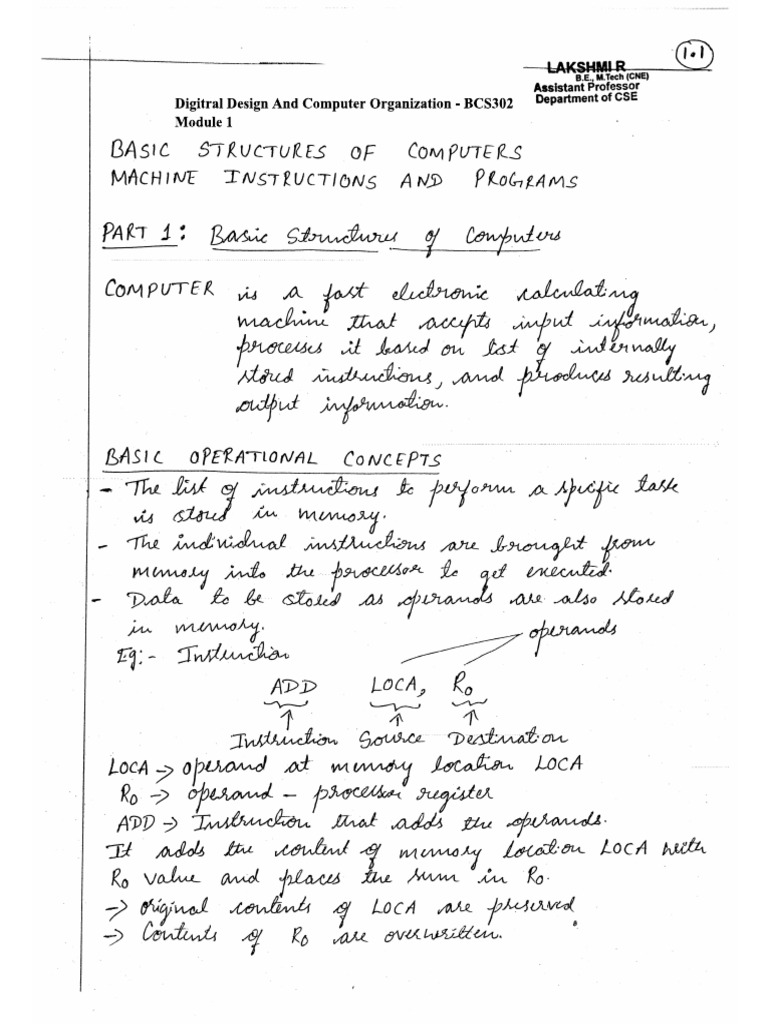 1.1
LAKSHMI R
B.E., M.Tech (CNE)
Assistant Professor
Department of CSE
Digitral Design And Computer Organization - BCS302
Module 1
BASIC STRUCTURES OF COMPUTERS
MACHINE INSTRUCTIONS AND PROGRAMS
PART 1: Basic Structures of Computers
COMPUTER is a fast electronic calculating
machine that accepts input information,
processes it based on list of internally
stored instructions, and produces resulting
output information.
BASIC OPERATIONAL CONCEPTS
- The list of instructions to perform a specific task
is stored in memory.
- The individual instructions are brought from
memory into the processor to get executed.
- Data to be stored as operands are also stored
in memory.
operands
Eg:- Instruction
ADD LOCA, R0
Instruction Source Destination
LOCA → operand at memory location LOCA
R0 → operand - processor register
ADD → Instruction that adds the operands.
It adds the content of memory location LOCA with
R0 value and places the sum in R0.
→ original contents of LOCA are preserved
→ Contents of R0 are overwritten.